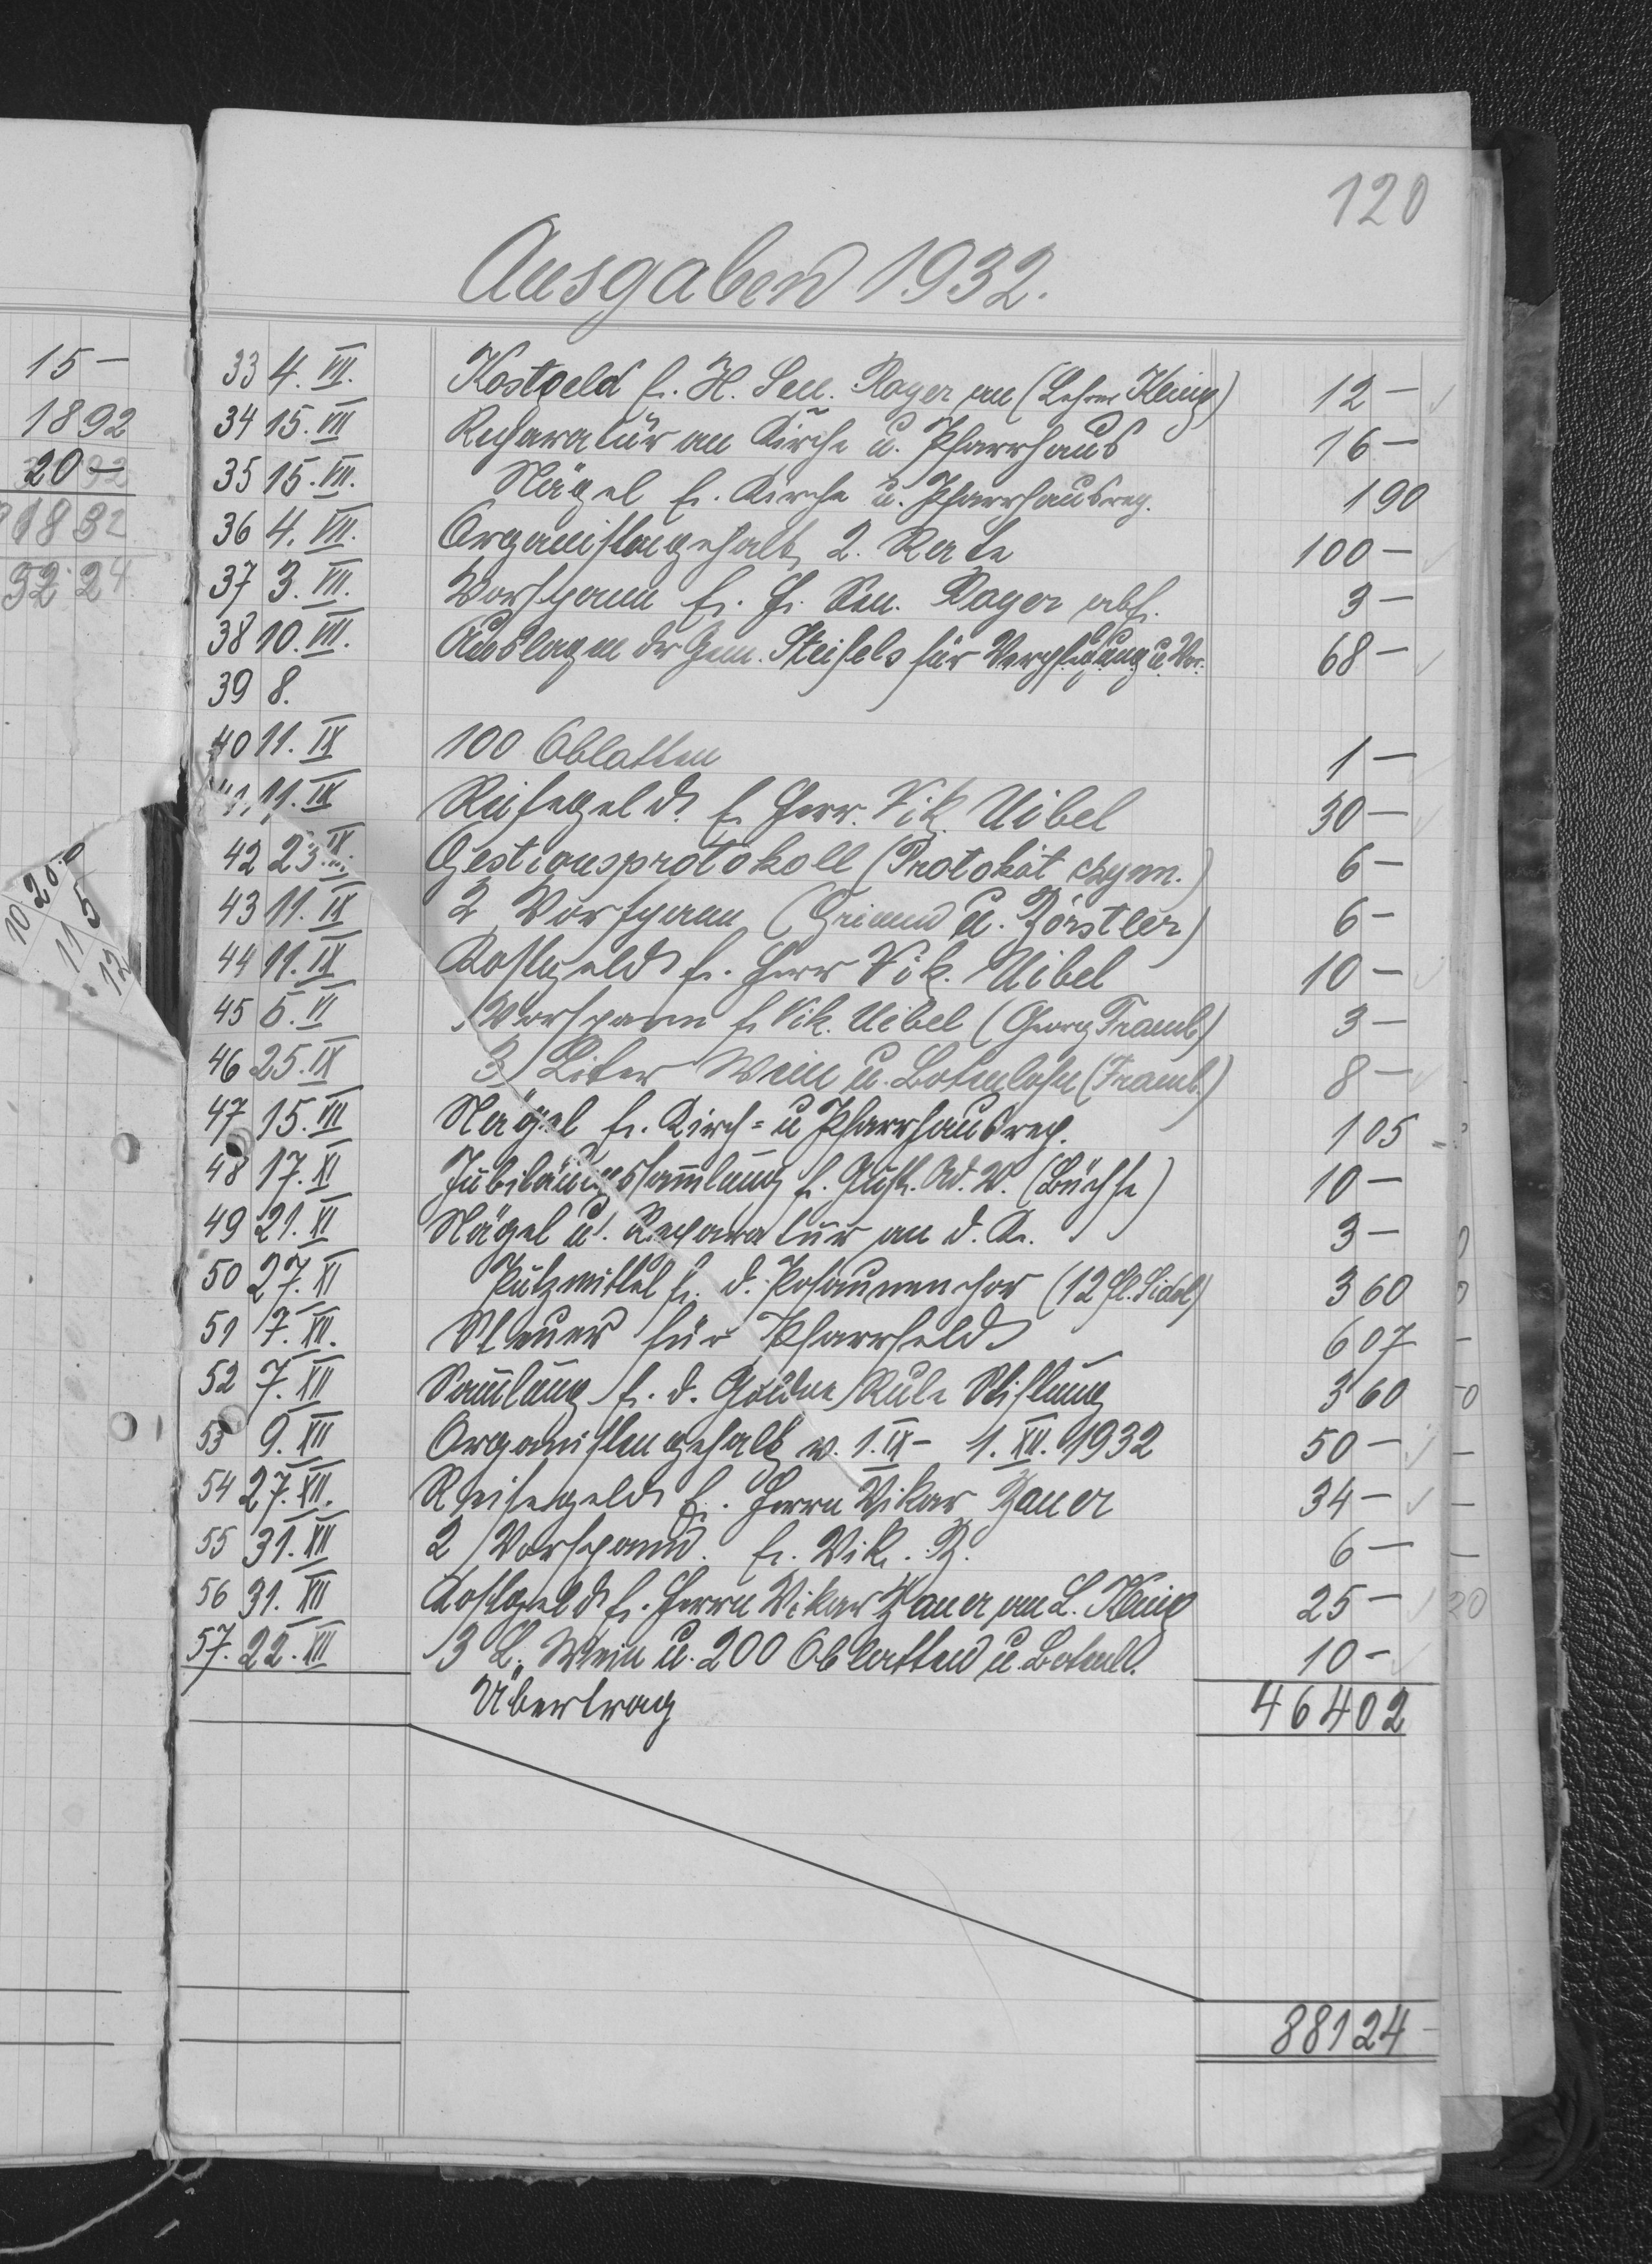 120
Ausgaben 1932.
15 —
1892
20 —
1832
5224
10 20.-
11 5
12
33 4. VII. Kostgeld f. H. Sen. Royer an (Lehrer König) 12 —
34 15. VII Reparatur an Kirche u. Pfarrhaus 16 —
35 15. VII. Nägel f. Kirche u. Pfarrhausrep. 1 90
36 4. VII. Organistengehalt, 2. Rate 100 —
37 3. VII. Vorspann f. H. Sen. Royer abh. 3 —
38 10. VII. Auslagen der Gem. Steifels für Verpflegung u. Vor. 68 —
39 8.
40 11. IX 100 Oblatten 1 —
41 11. IX Reisegeld f. Herr. Vik. Uibel 30 —
42 23. IX Gestionsprotokoll (Protokół czynn.) 6 —
43 11. IX 2 Vorspann (Griend u. Förstler) 6 —
44 11. IX Kostgeld f. Herr Vik. Uibel 10 —
45 5. VI Vorspann f. Vik. Uibel (Georg Tramb) 3 —
46 25. IX 3 Liter Wein u. Botenlohn (Tramb.) 8 —
47 15. VII Nägel f. Kirch- u Pfarrhausrep. 1 05
48 17. XI Jubiläumssammlung f. Gust. Ad. V. (Büchse) 10 —
49 21. XI Nägel u. Reparatur an d. K. 3 —
50 27. XI Putzmittel f. d. Posaunenchor (12 Fl. Sidol) 3 60
51 7. XII. Steuer für Pfarrfeld 6 07
52 7. XII Sammlung f. d. Goldne Rule Stiftung 3 60
53 9. XII Organistengehalt v. 1. IX - 1. XII. 1932 50 —
54 27. XII. Reisegeld f. Herrn Vikar Bauer 34 —
55 31. XII 2 Vorspann. f. Vik. B. 6 —
56 31. XII Kostgeld f. Herrn Vikar Bauer an L. König 25 —
57. 22. XII 3 L. Wein u. 200 Oblatten u. Botenl. 10 —
Übertrag 464 02
881 24